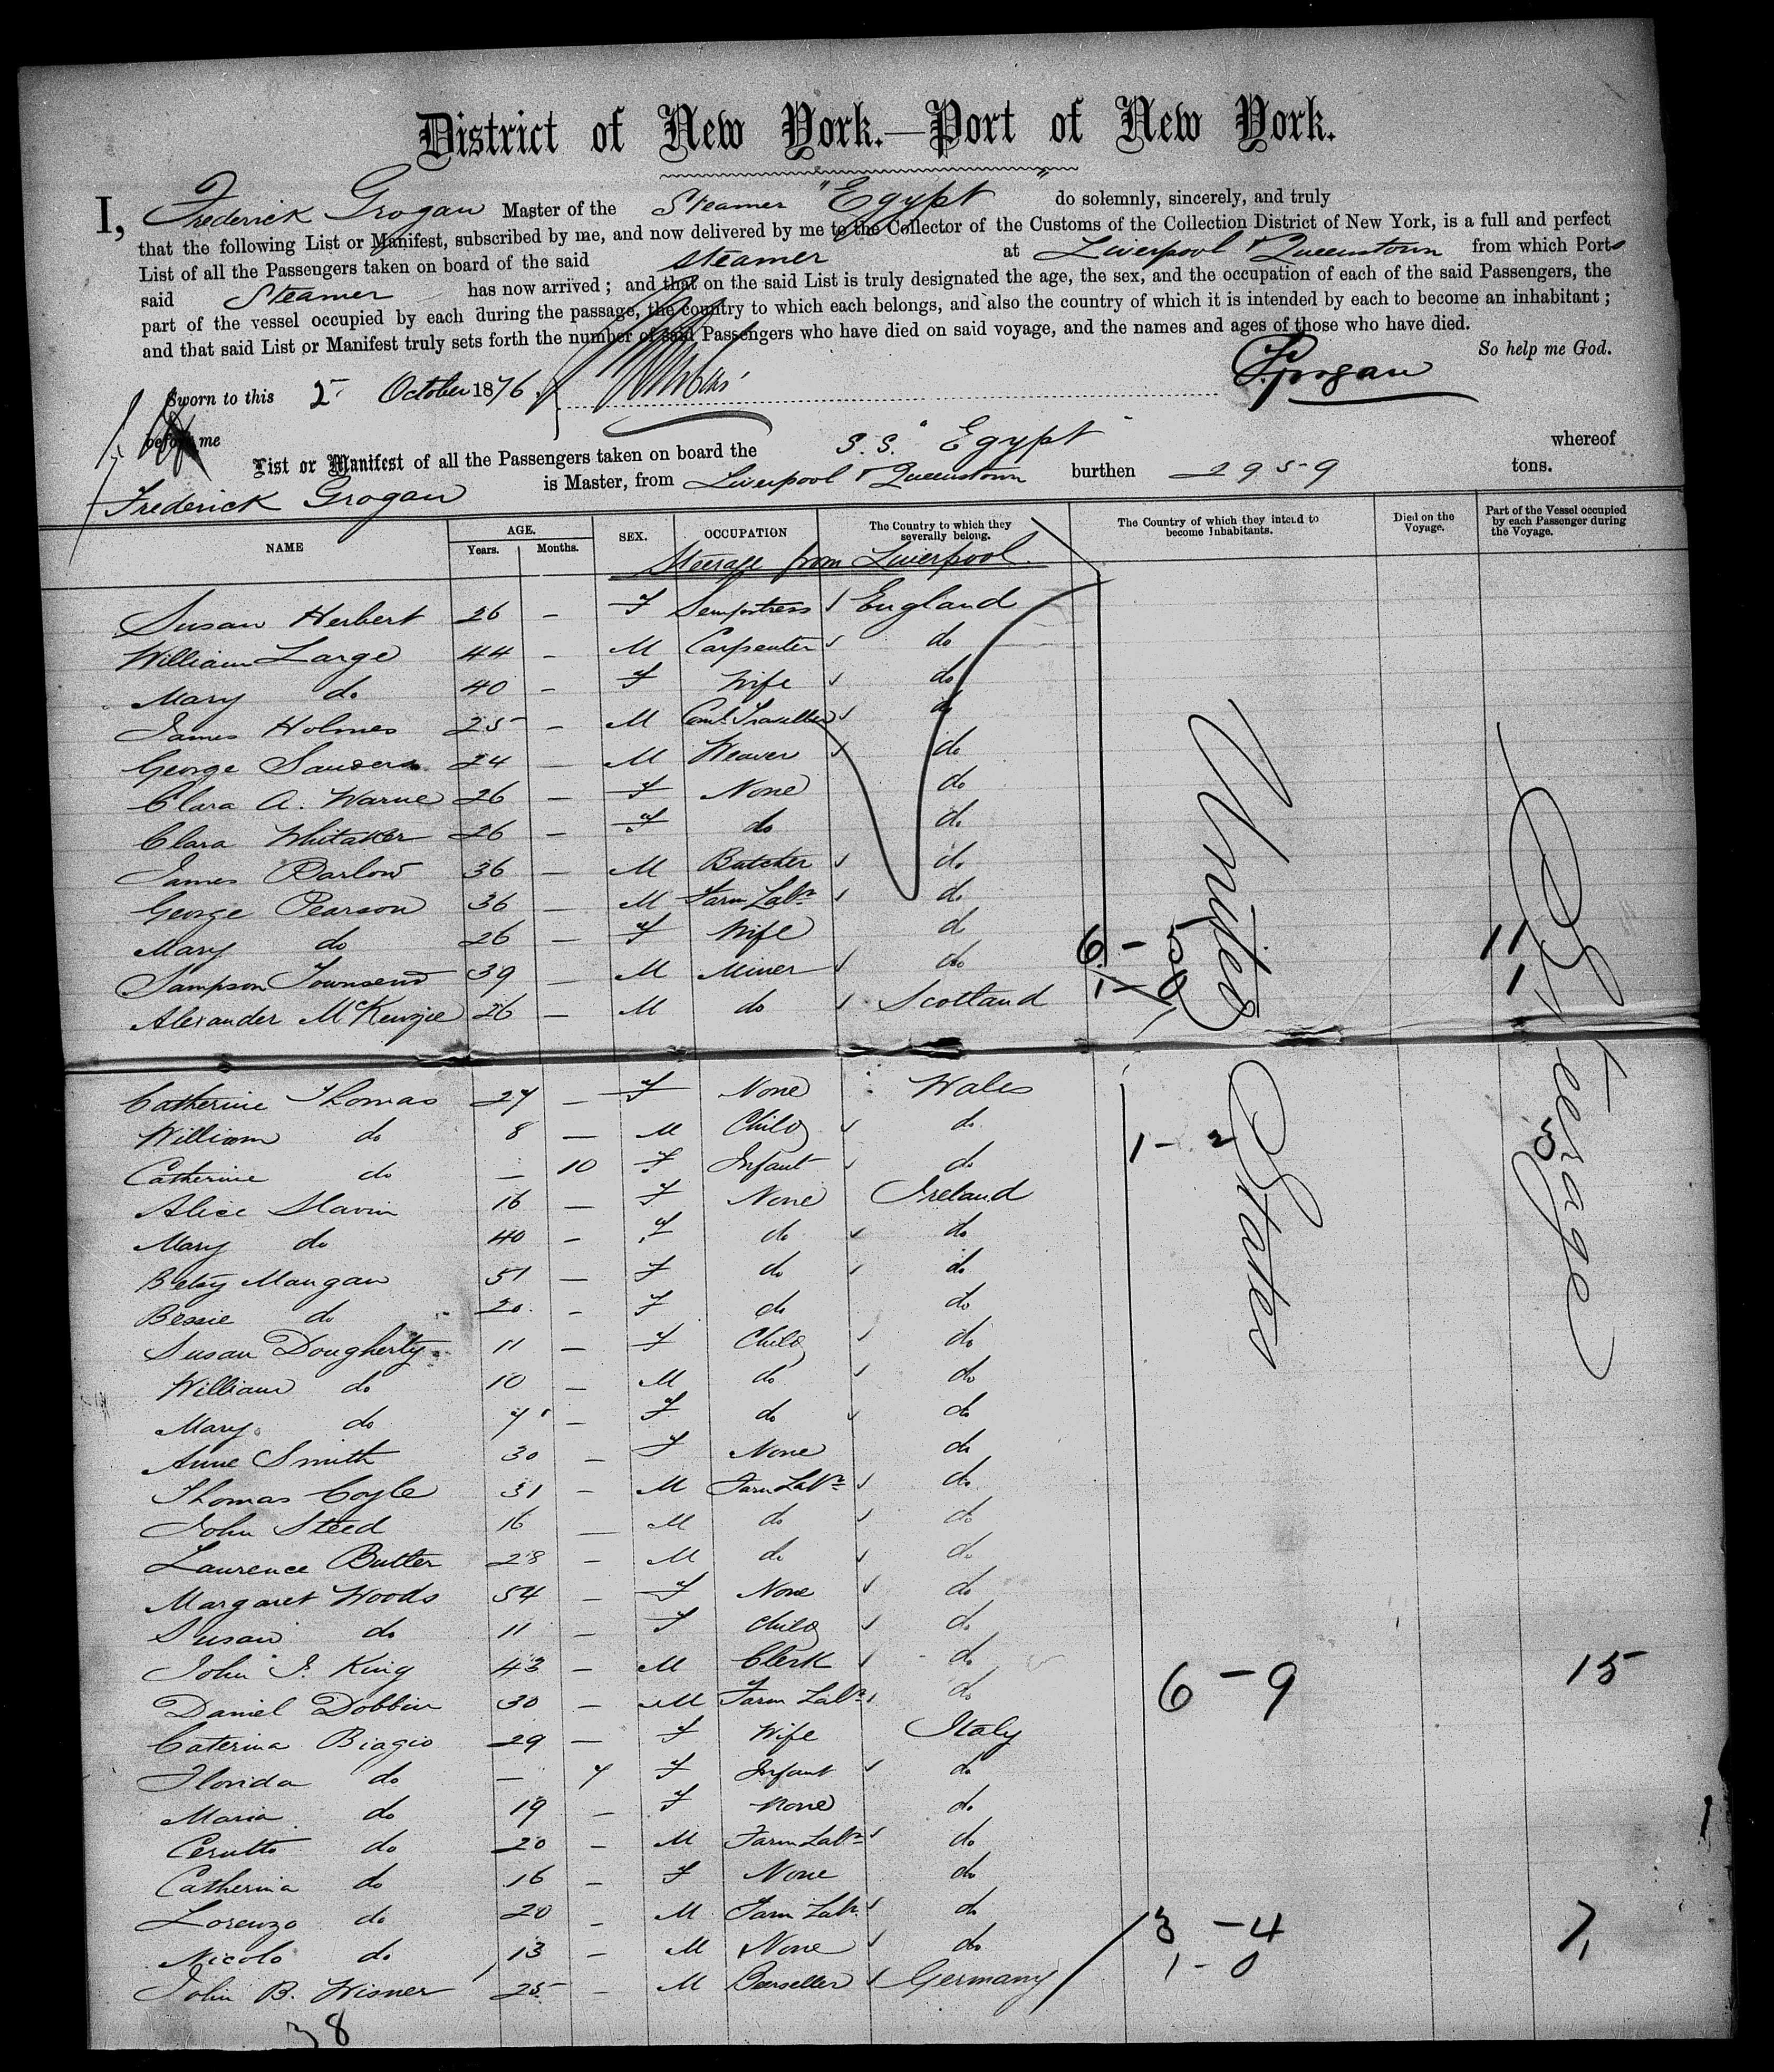 District of New York.—Port of New York.
I, Frederick Grogan Master of the Steamer "Egypt" do solemnly, sincerely, and truly
that the following List or Manifest, subscribed by me, and now delivered by me to the Collector of the Customs of the Collection District of New York, is a full and perfect
List of all the Passengers taken on board of the said steamer at Liverpool & Queenstown from which Ports
said Steamer has now arrived; and that on the said List is truly designated the age, the sex, and the occupation of each of the said Passengers, the
part of the vessel occupied by each during the passage, the country to which each belongs, and also the country of which it is intended by each to become an inhabitant;
and that said List or Manifest truly sets forth the number of said Passengers who have died on said voyage, and the names and ages of those who have died.
So help me God.
Sworn to this 2 October 1876 F. Grogan
before me
List or Manifest of all the Passengers taken on board the S.S. "Egypt" whereof
Frederick Grogan is Master, from Liverpool & Queenstown burthen 2959 tons.
NAME AGE. Years. Months. SEX. OCCUPATION The Country to which they severally belong. The Country of which they intend to become Inhabitants. Died on the Voyage. Part of the Vessel occupied by each Passenger during the Voyage.
Steerage from Liverpool.
Susan Herbert 26 — F Sempstress England
William Large 44 — M Carpenter do
Mary do 40 — F Wife do
James Holmes 25 — M Coml. Traveller do
George Sanders 24 — M Weaver do
Clara A. Warne 26 — F None do
Clara Whitaker 26 — F do do
James Barlow 36 — M Butcher do
George Pearson 36 — M Farm Labr do
Mary do 26 — F Wife do
Sampson Townsend 39 — M Miner do 6 - 5 11
Alexander McKenzie 26 — M do Scotland 1 - 0 1
United States
Steerage
Catherine Thomas 27 — F None Wales
William do 8 — M Child do 1 - 2 3
Catherine do — 10 F Infant do
Alice Slavin 16 — F None Ireland
Mary do 40 — F do do
Betsy Mangan 51 — F do do
Bessie do 20 — F do do
Susan Dougherty 11 — F Child do
William do 10 — M do do
Mary do 7 — F do do
Anne Smith 30 — F None do
Thomas Coyle 31 — M Farm Labr do
John Steed 16 — M do do
Laurence Butler 28 — M do do
Margaret Woods 54 — F None do
Susan do 11 — F Child do
John J. King 43 — M Clerk do 6 - 9 15
Daniel Dobbin 30 — M Farm Labr do
Caterina Biagio 29 — F Wife Italy
Florida do — 7 F Infant do
Maria do 19 — F None do
Cerutto do 20 — M Farm Labr do
Catherina do 16 — F None do
Lorenzo do 20 — M Farm Labr do 3 - 4 7
Nicolo do 13 — M None do 1 - 0 1
John B. Wisner 25 — M Beerseller Germany
38